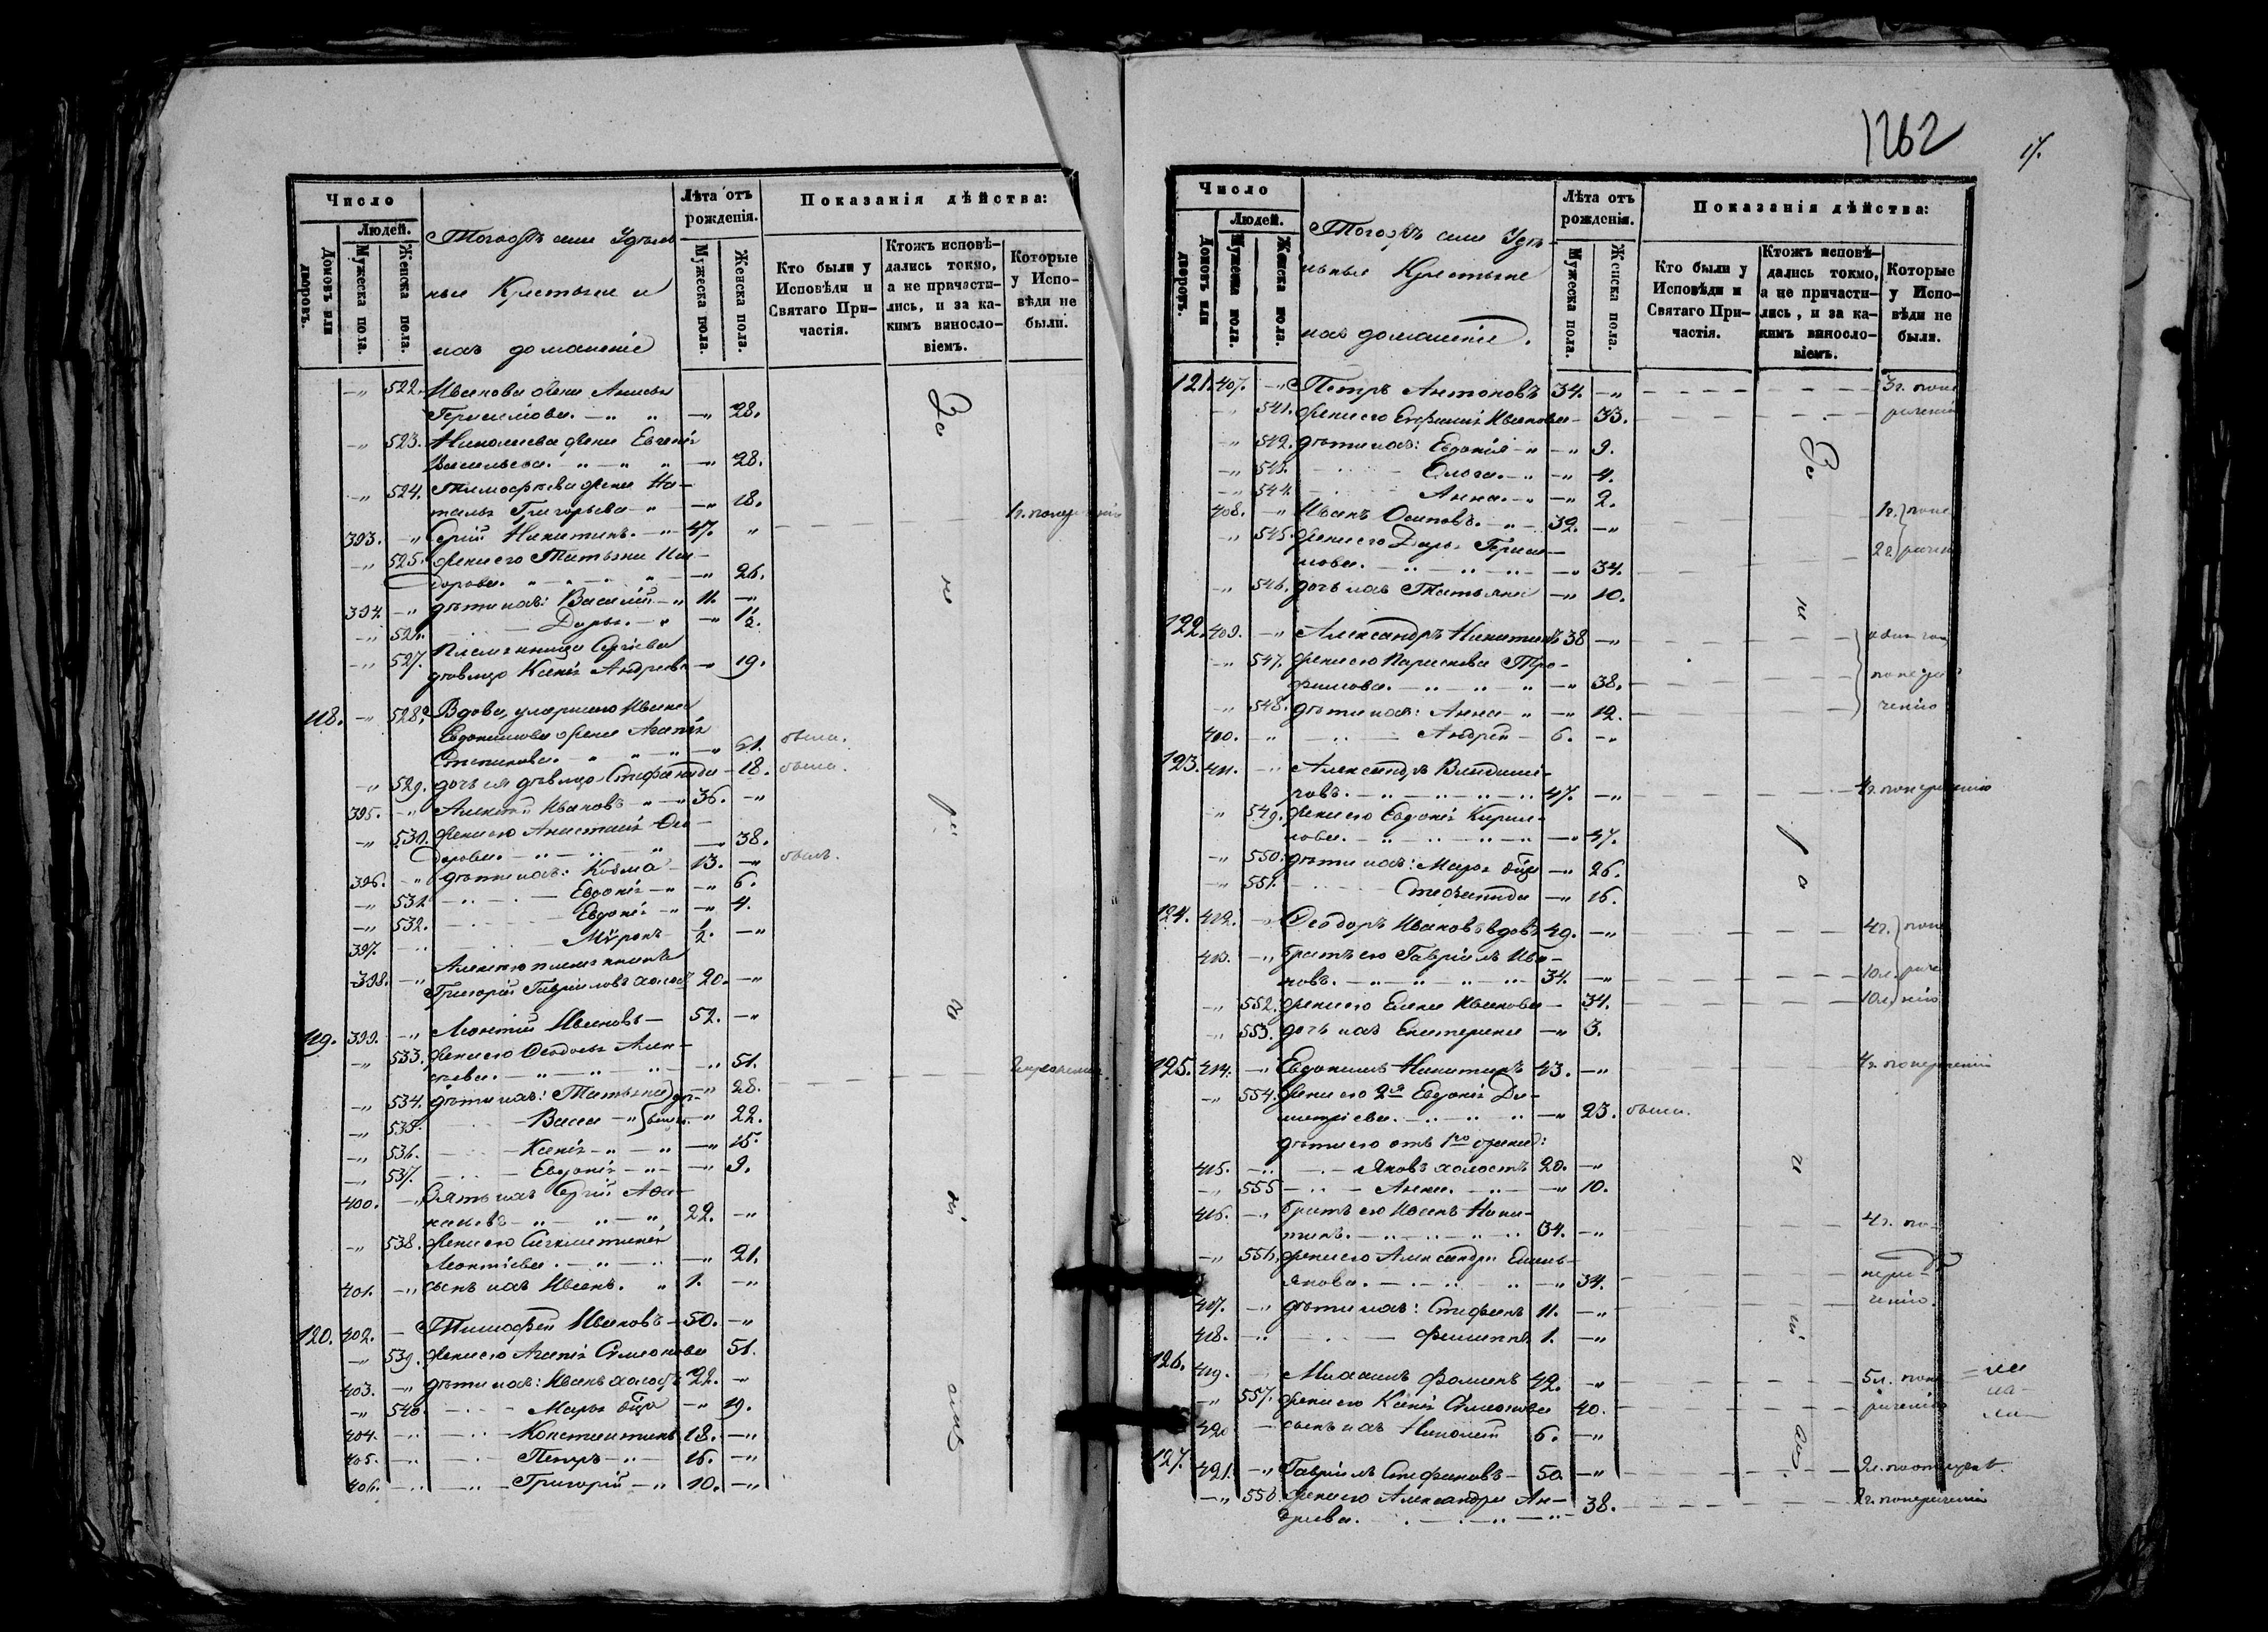 Число
Людей.
Домовъ или дворовъ.
Мужеска пола.
Женска пола.
Тогожъ села Удѣль
ные Крестьяне и
ихъ домашніе
Лѣта отъ рожденія.
Мужеска пола.
Женска пола.
Показанія дѣйства:
Кто были у Исповѣди и Святаго Причастія.
Ктожъ исповѣдались токмо, а не причастились, и за какимъ винословіемъ.
Которые у Исповѣди не были.
522. Иванова жена Анисья
Герасимова. 28.
523. Николаева жена Евгенія
Васильева. 28.
524. Тимофѣева жена На-
талья Григорьева 18.
393. Сергій Никитинъ. 47. 1г.
525. жена его Татьяна
26.
394. дѣти ихъ: Василій 11.
Дарья. 1/2.
527. Племянница Сергіева
дѣвица Ксенія Андреева 19.
118. 528. Вдова, умершаго Ивана
Евдокимова жена Агапія
Степанова. 61. была.
529. дочь ея дѣвица Стефанида 18. была.
395. Алексѣй Ивановъ 36.
530. жена его Анастасія Ѳео-
дорова. 38.
396. дѣти ихъ: Козма 13. былъ.
531. Евдокія 6.
532. Евдокія 4.
397. Мѵронъ 1/2.
Алексѣю племянникъ
398. Григорій Гавріиловъ холостъ 20.
119. 399. Леонтій Ивановъ 52.
533. жена его Ѳеодосья Алек-
сѣева. 51.
534. дѣти ихъ: Татьяна 28.
535. Васса 22.
536. Ксенія 15.
537. Евдокія 9.
400. Зять ихъ Сергій Аѳа-
насьевъ 22.
538. жена его
Леонтіева. 21.
401. сынъ ихъ Иванъ. 1.
120. 402. Тимофей Ивановъ 50.
539. жена его Агапія Сѵмеонова 51.
403. дѣти ихъ: Иванъ холостъ 22.
540. Марья дѣвица 19.
404. Константинъ 18.
405. Петръ 16.
406. Григорій 10.
1262
17.
Число
Людей.
Домовъ или дворовъ.
Мужеска пола.
Женска пола.
Тогожъ села Удѣ-
льные Крестьяне
ихъ домашніе.
Лѣта отъ рожденія.
Мужеска пола.
Женска пола.
Показанія дѣйства:
Кто были у Исповѣди и Святаго Причастія.
Ктожъ исповѣдались токмо, а не причастились, и за какимъ винословіемъ.
Которые у Исповѣди не были.
121. 407. Петръ Антоновъ 34. 3г.
541. жена его Ивановна 33.
542. дѣти ихъ: Евдокія 9.
543. Ольга. 4.
544. Анна. 2.
408. Иванъ Осиповъ. 32. 1г.
545. жена его Дарья Гераси-
мова. 34. 2г.
546. дочь ихъ Татьяна 10.
122. 409. Александръ Никитинъ 38
547. жена его Параскева Тро-
фимова. 38.
548. дѣти ихъ: Анна 12.
410. Андрей 6.
123. 411. Александръ Владими-
ровъ. 47. 4г. нерадѣнію
549. жена его Евдокія Кирил-
лова. 47.
550. дѣти ихъ: Марья дѣвица 26.
551. Стефанида 16.
124. 412. Ѳеодоръ Ивановъ вдовъ 49. 4г.
413. братъ его Гавріилъ Ива-
новъ. 34. 10л.
552. жена его Елена Иванова 34. 10л.
553. дочь ихъ Екатерина 3.
125. 414. Евдокимъ Никитинъ 43. 4г.
554. жена его 2я Евдокія Ди-
митріева. 23. была.
дѣти его отъ 1й жены:
415. Яковъ холостъ 20.
555 Анна. 10.
416. братъ его Иванъ Ники-
тинъ. 34. 4г. по
556. жена его Александра Емель-
янова. 34.
417. дѣти ихъ: Стефанъ 11.
418. Филиппъ 1.
126. 419. Михаилъ Фоминъ 42. 5л.
557. жена его Ксенія Сѵмеонова 40.
420 сынъ ихъ Николай 6.
127. 421. Гавріилъ Стефановъ 50.
558. жена его Александра Ан-
дреева. 38. 2г.